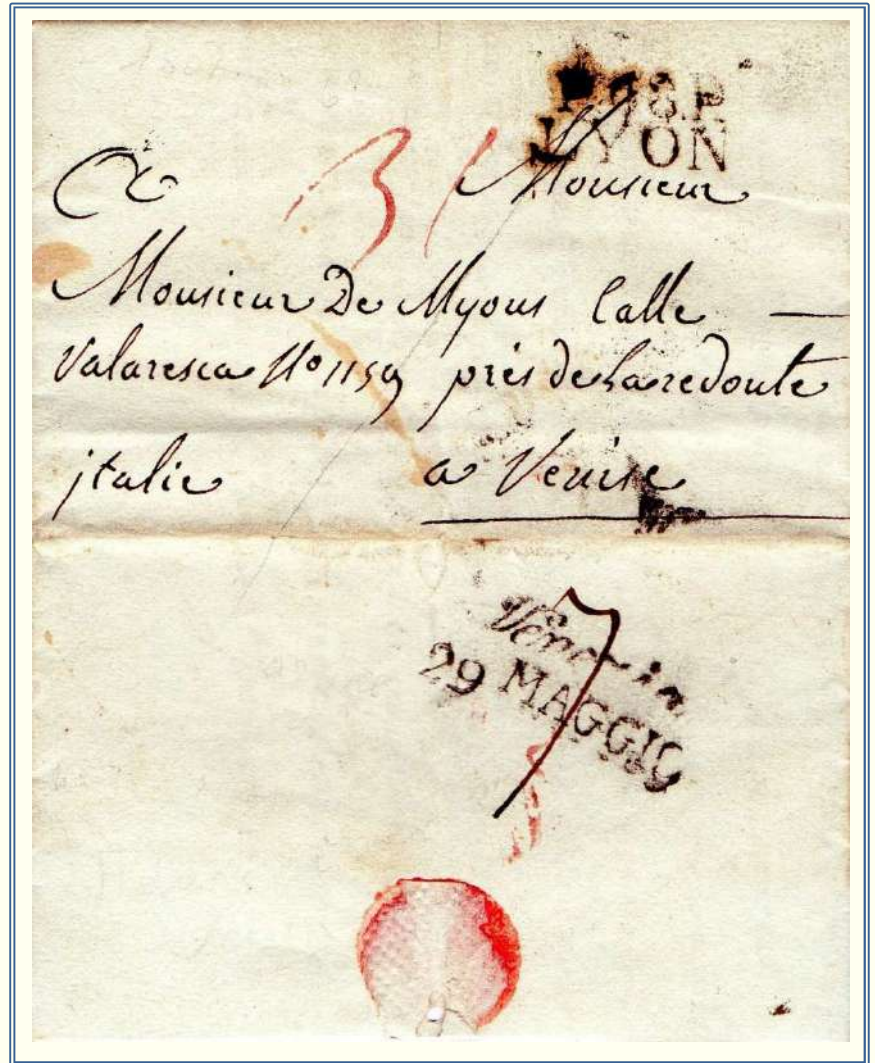 P.68.P.
LYON
A Monsieur
31
Monsieur De Myons Calle
Valaresca N° 1159 près de La redoute
italie a Venise
Venezia
29 MAGGIO
7